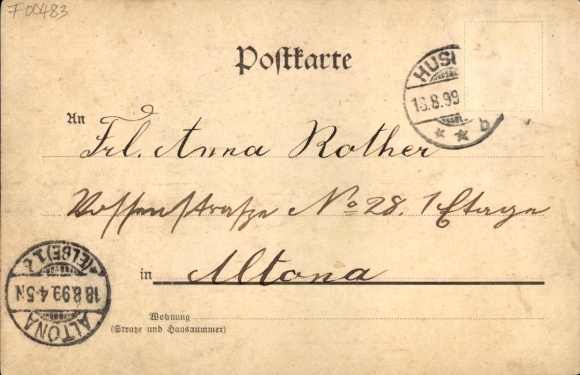 F 00483
Postkarte
HUSU
18.8.99
b
An
Frl. Anna Rother
No 28. 1 Etage
in Altona
Wohnung
(Straße und Hausnummer)
ALTONA
18.8.99. 4-5N
(ELBE) 1